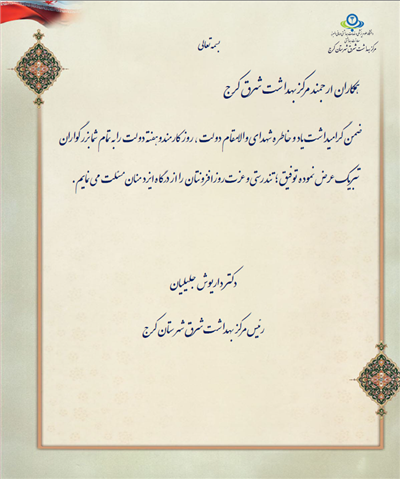 بسمه تعالی
مرکز بهداشت شرق شهرستان کرج
همکاران ارجمند مرکز بهداشت شرق کرج
ضمن گرامیداشت یاد و خاطره شهدای والامقام دولت ، روز کارمند و هفته دولت را به تمام شما بزرگواران
تبریک عرض نموده توفیق ؛ تندرستی و عزت روزافزونتان را از درگاه ایزد منان مسئلت می نمایم .
دکتر داریوش جلیلیان
رئیس مرکز بهداشت شرق شهرستان کرج